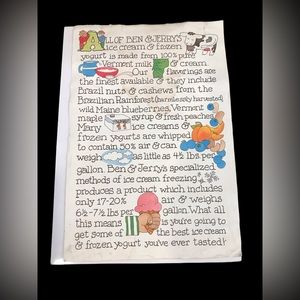 ALL OF BEN & JERRY'S
ice cream & frozen
yogurt is made from 100% pure
Vermont milk & cream.
Our flavorings are
the finest available & they include
Brazil nuts & cashews from the
Brazilian Rainforest (harmlessly harvested)
wild Maine blueberries, Vermont
maple syrup & fresh peaches
Many ice creams &
frozen yogurts are whipped
to contain 50% air & can
weigh as little as 4½ lbs per
gallon. Ben & Jerry's specialized
methods of ice cream freezing
produces a product which includes
only 17-20% air & weighs
6½-7½ lbs per gallon. What all
this means is you're going to
get some of the best ice cream
& frozen yogurt you've ever tasted!